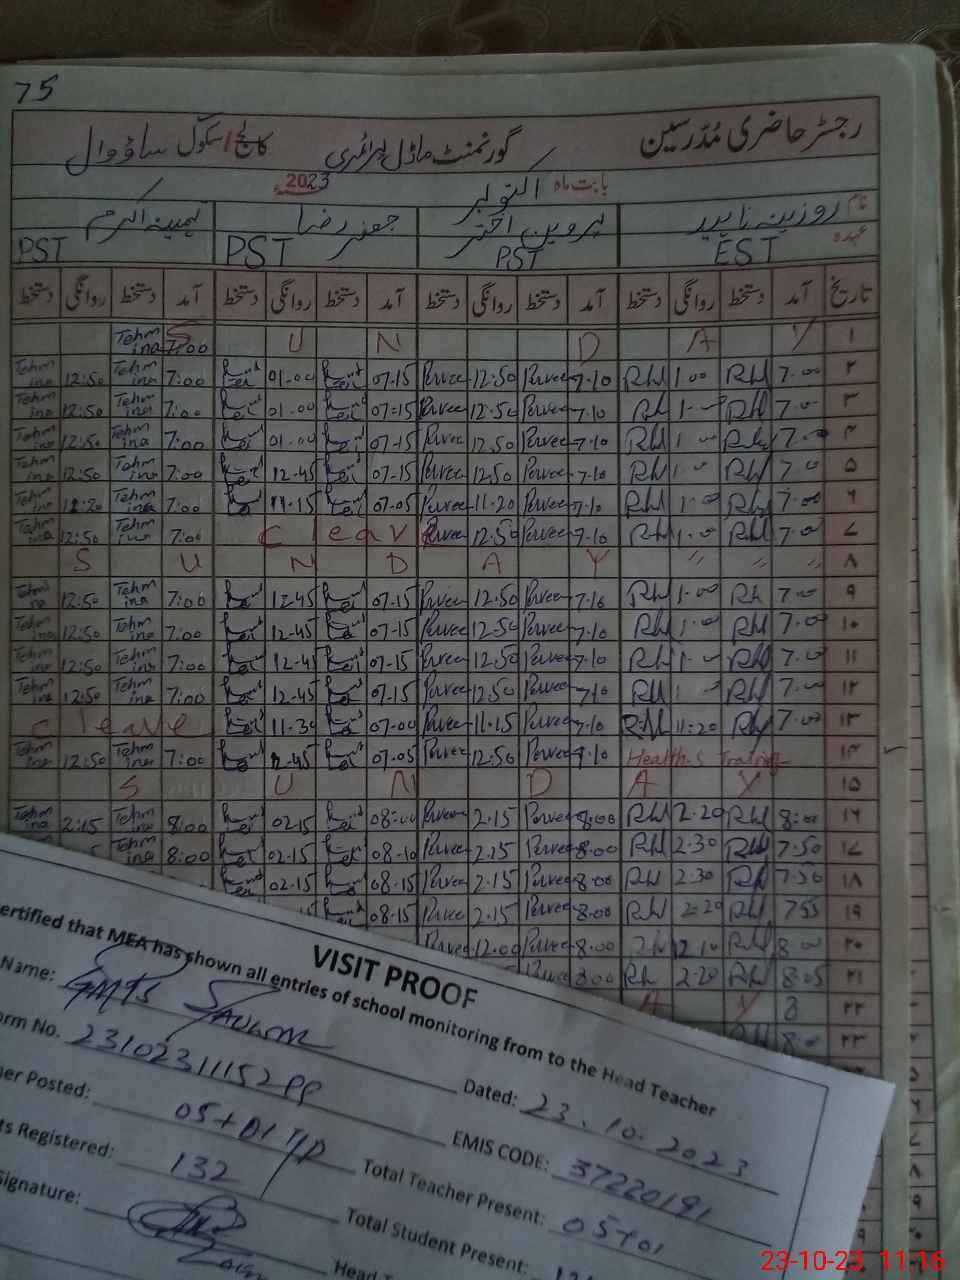 75
رجسٹر حاضری مُدّرسین گورنمنٹ ماڈل پرائمری کالج/سکول ساؤوال
بابت ماہ اکتوبر 2023
نام روزینہ ناہید پروین اختر جعفر رضا تہمینہ اکرم
عہدہ EST PST PST PST
تاریخ آمد دستخط روانگی دستخط آمد دستخط روانگی دستخط آمد دستخط روانگی دستخط آمد دستخط روانگی دستخط
Tehmina 7:00 S U N D A Y ۱
Tehmina 12:50 Tehmina 7:00 01-00 07-15 Parveen 12:50 Parveen 7-10 RH 1.00 RH 7.00 ۲
Tehmina 12:50 Tehmina 7:00 01-00 07-15 Parveen 12.50 Parveen 7.10 RH 1.00 RH 7.00 ۳
Tehmina 12:50 Tehmina 7:00 01-00 07-15 Parveen 12.50 Parveen 7.10 RH 1.00 RH 7.00 ۴
Tehmina 12:50 Tehmina 7:00 12-45 07-15 Parveen 12.50 Parveen 7.10 RH 1.00 RH 7.00 ۵
Tehmina Tehmina 7:00 11-15 07-05 Parveen 11-20 Parveen 7-10 RH 1.00 RH 7.00 ۶
Tehmina 12:50 Tehmina 7:00 c leave Parveen 12.50 Parveen 7-10 RH 1.00 RH 7.00 ۷
S U N D A Y " " " ۸
Tehmina 12:50 Tehmina 7:00 12-45 07-15 Parveen 12.50 Parveen 7.10 RH 1.00 RH 7.00 ۹
Tehmina 12:50 Tehmina 7:00 12-45 07-15 Parveen 12.50 Parveen 7.10 RH 1.00 RH 7.00 ۱۰
Tehmina 12:50 Tehmina 7:00 12-45 07-15 Parveen 12.50 Parveen 7.10 RH 1.00 RH 7.00 ۱۱
Tehmina 12:50 Tehmina 7:00 12-45 07-15 Parveen 12.50 Parveen 7.10 RH RH 7.00 ۱۲
c leave 11-30 07-00 Parveen 11-15 Parveen 7.10 RH 11-20 RH 7.00 ۱۳
Tehmina 12:50 Tehmina 7:00 12-45 07-05 Parveen 12:50 Parveen 7-10 Health.S Training ۱۴
S U N D A Y ۱۵
Tehmina 2:15 Tehmina 8:00 02-15 08-00 Parveen 2.15 Parveen 8:00 RH 2.20 RH 8:00 ۱۶
Tehmina 8:00 02-15 08-10 Parveen 2.15 Parveen 8.00 RH 2.30 RH 7.50 ۱۷
02-15 08-15 Parveen 2.15 Parveen 8.00 RH 2.30 RH 7.50 ۱۸
08-15 Parveen 2.15 Parveen 8.00 RH 2.20 RH 755 ۱۹
Parveen 12.00 Parveen 8.00 RH 12.10 RH 8.00 ۲۰
Parveen 8.00 RH 2.20 RH 8.05 ۲۱
A Y ۲۲
RH 8.00 ۲۳
VISIT PROOF
ertified that MEA has shown all entries of school monitoring from to the Head Teacher
Name: GMPS SAUWAL Dated: 23.10.2023
orm No. 23102311152PP EMIS CODE: 37220191
er Posted: 05+01 Total Teacher Present: 05+01
ts Registered: 132 Total Student Present:
Signature: Head T
23-10-23, 11-16